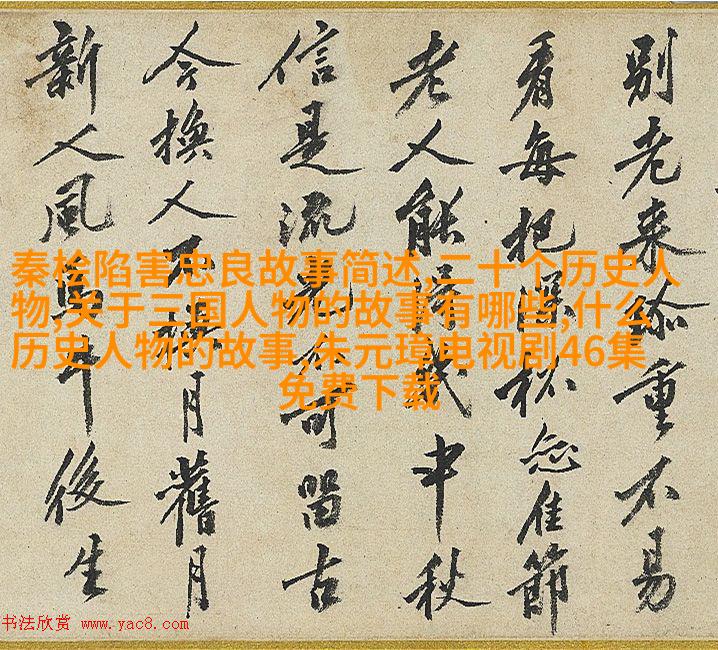 別老来珎重不易
看每把深杯佳節
老人能得幾中秋
信是流光不可留古
今換人不換月舊月
新人風馬牛後生
秦桧陷害忠良故事简述,二十个历史人
物,关于三国人物的故事有哪些,什么
历史人物的故事,朱元璋电视剧46集
免费下载
书法欣赏 www.yac8.com